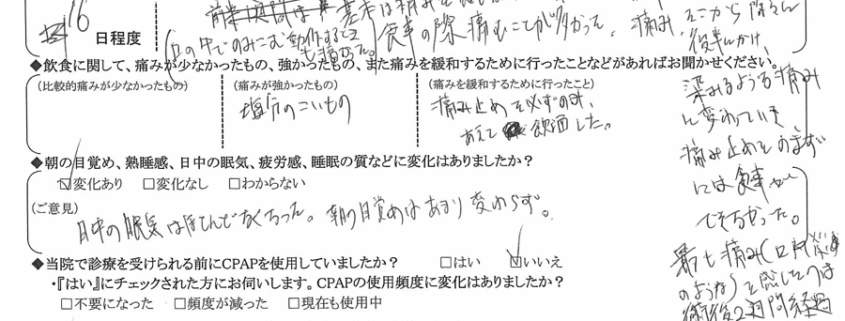 約16
日程度
口の中でのみこむ動作するとき
食事の際痛むことが多かった。
◆飲食に関して、痛みが少なかったもの、強かったもの、また痛みを緩和するために行ったことなどがあればお聞かせください。
(比較的痛みが少なかったもの)
(痛みが強かったもの)
塩分のこいもの
(痛みを緩和するために行ったこと)
痛み止めを必ずのみ、
あえて飲酒した。
後半にかけ、
染みるような痛み
に変わっていき
痛み止めをのまず
には食事が
できなかった。
最も痛み(口内炎
のような)を感じたのは
術後2週間経過
◆朝の目覚め、熟睡感、日中の眠気、疲労感、睡眠の質などに変化はありましたか?
☑変化あり □変化なし □わからない
(ご意見)
日中の眠気はほとんどなくなった。朝の目覚めはあまり変わらず。
◆当院で診療を受けられる前にCPAPを使用していましたか? □はい ☑いいえ
・『はい』にチェックされた方にお伺いします。CPAPの使用頻度に変化はありましたか?
□不要になった □頻度が減った □現在も使用中